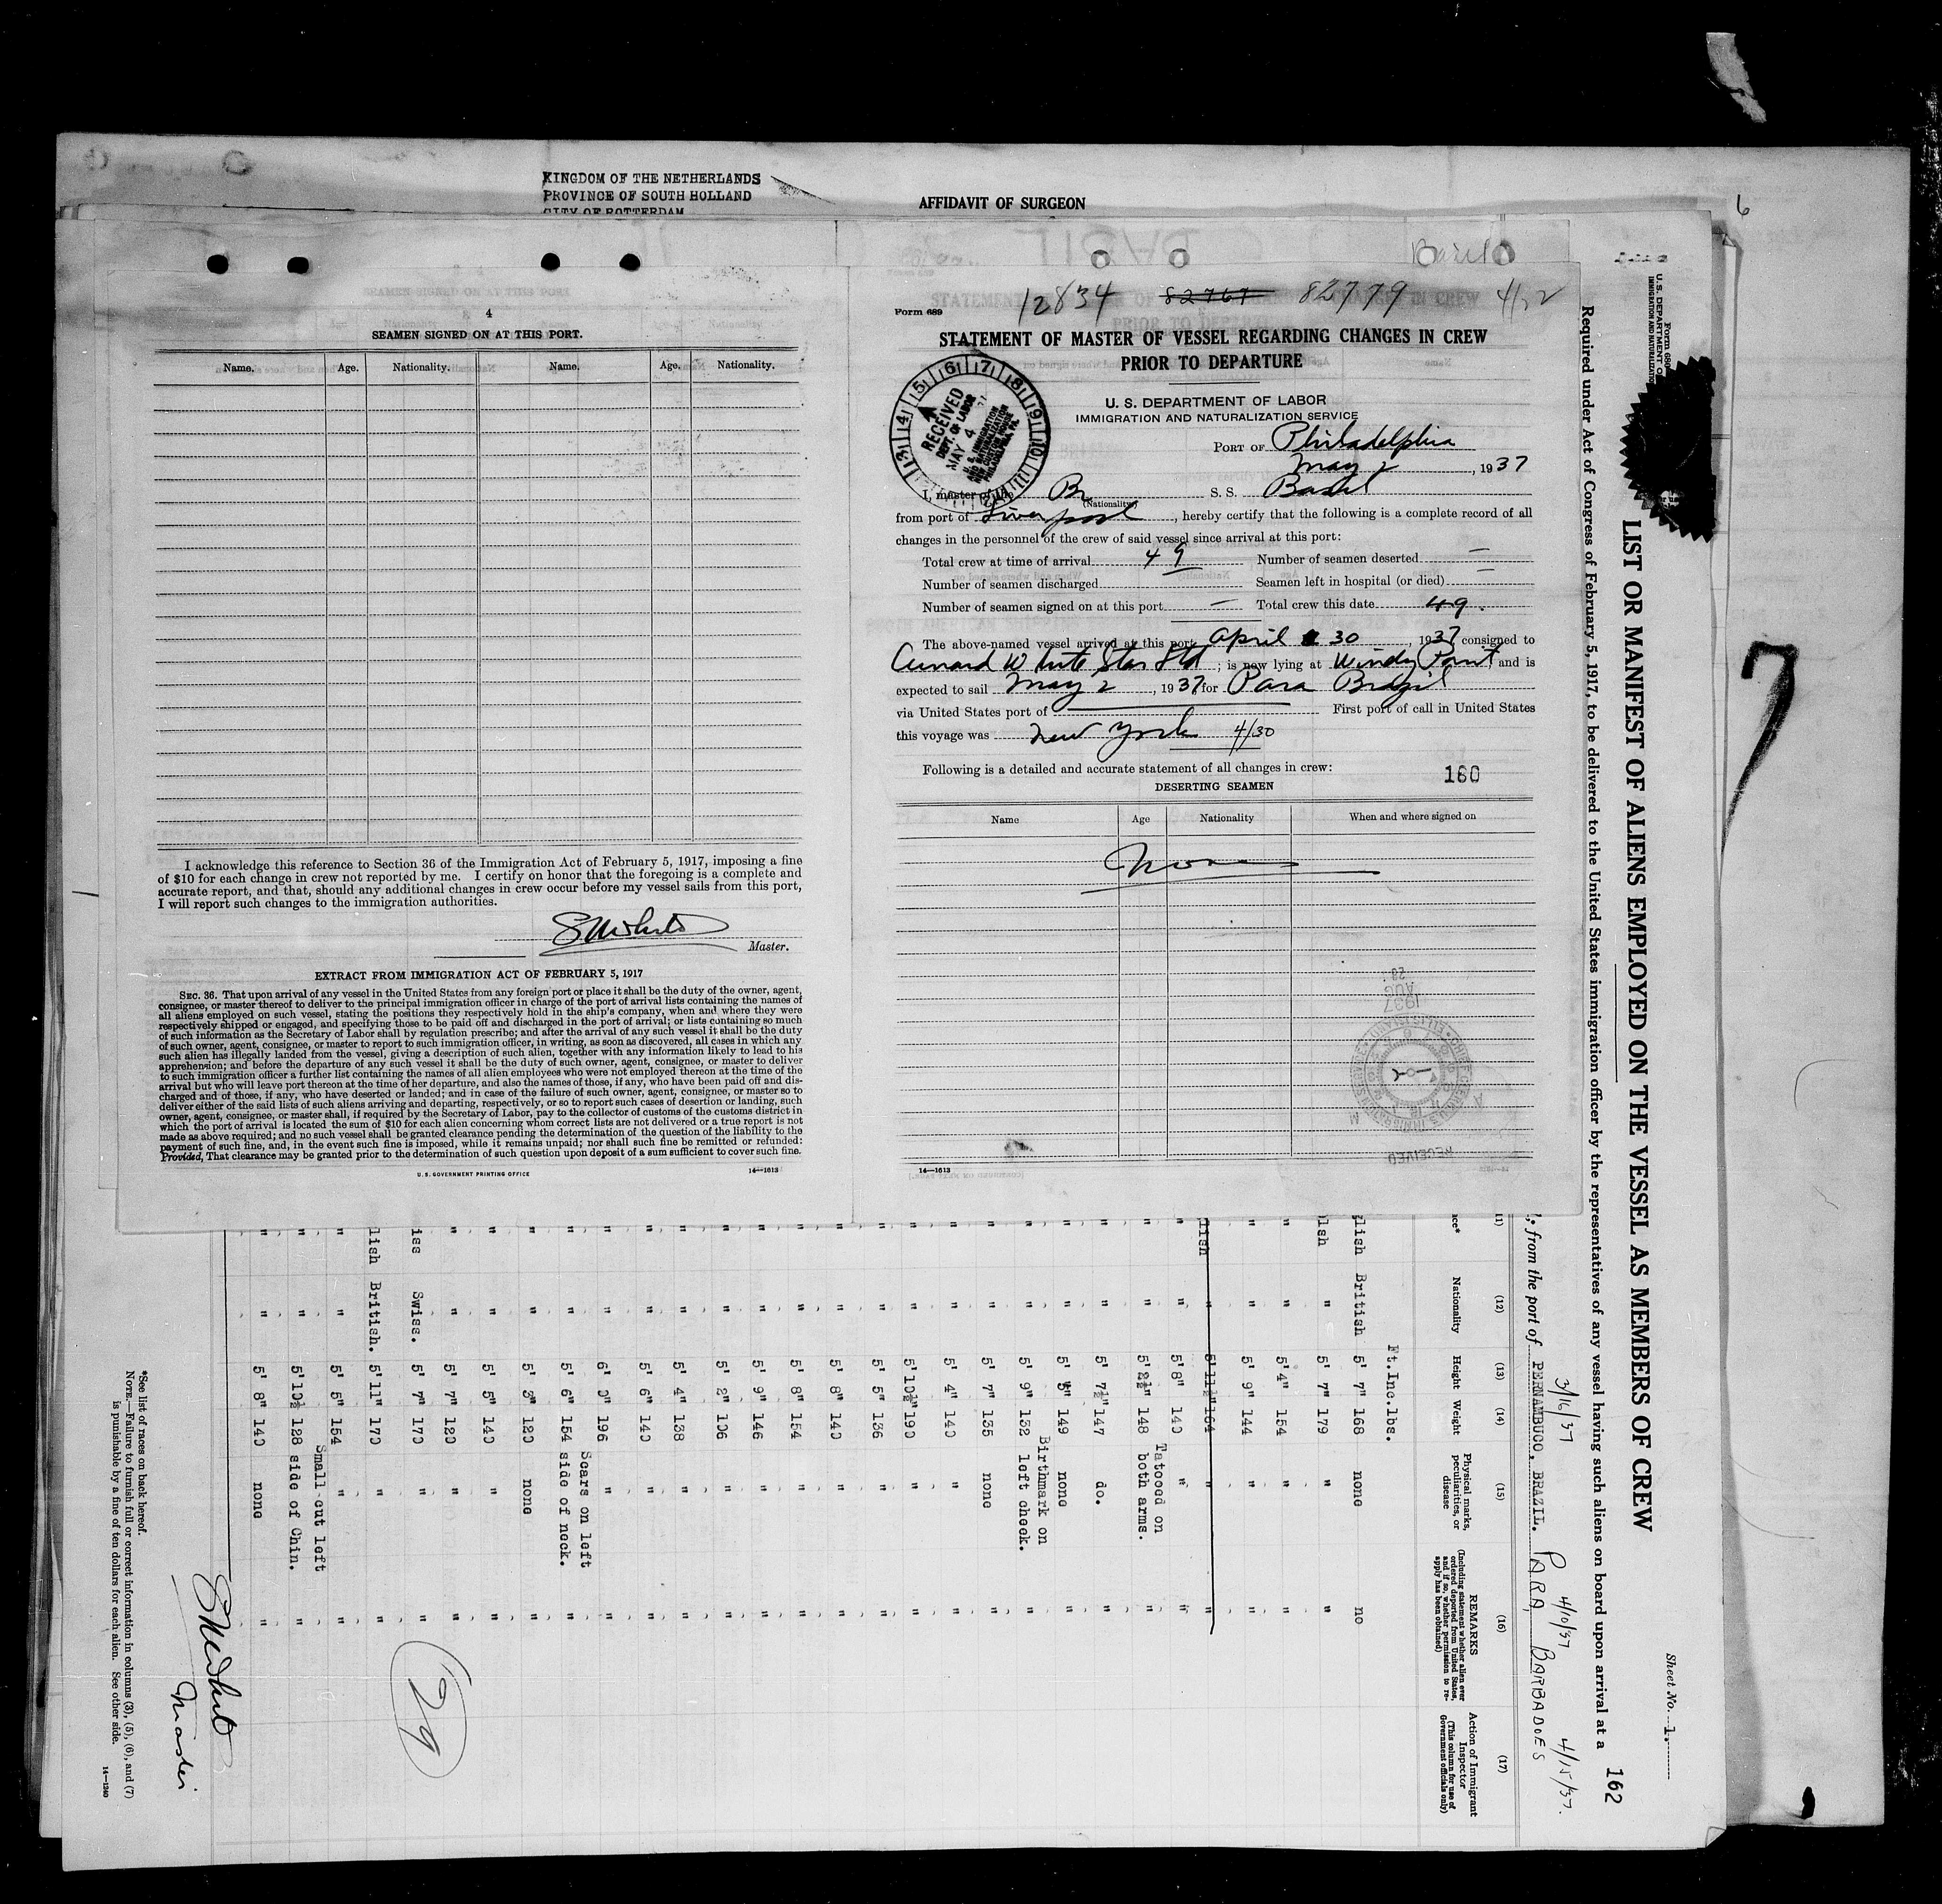 KINGDOM OF THE NETHERLANDS
PROVINCE OF SOUTH HOLLAND
CITY OF ROTTERDAM
AFFIDAVIT OF SURGEON
6
4
SEAMEN SIGNED ON AT THIS PORT.
Name. Age. Nationality. Name. Age. Nationality.
I acknowledge this reference to Section 36 of the Immigration Act of February 5, 1917, imposing a fine
of $10 for each change in crew not reported by me. I certify on honor that the foregoing is a complete and
accurate report, and that, should any additional changes in crew occur before my vessel sails from this port,
I will report such changes to the immigration authorities.
Master.
EXTRACT FROM IMMIGRATION ACT OF FEBRUARY 5, 1917
SEC. 36. That upon arrival of any vessel in the United States from any foreign port or place it shall be the duty of the owner, agent,
consignee, or master thereof to deliver to the principal immigration officer in charge of the port of arrival lists containing the names of
all aliens employed on such vessel, stating the positions they respectively hold in the ship's company, when and where they were
respectively shipped or engaged, and specifying those to be paid off and discharged in the port of arrival; or lists containing so much
of such information as the Secretary of Labor shall by regulation prescribe; and after the arrival of any such vessel it shall be the duty
of such owner, agent, consignee, or master to report to such immigration officer, in writing, as soon as discovered, all cases in which any
such alien has illegally landed from the vessel, giving a description of such alien, together with any information likely to lead to his
apprehension; and before the departure of any such vessel it shall be the duty of such owner, agent, consignee, or master to deliver
to such immigration officer a further list containing the names of all alien employees who were not employed thereon at the time of the
arrival but who will leave port thereon at the time of her departure, and also the names of those, if any, who have been paid off and dis-
charged and of those, if any, who have deserted or landed; and in case of the failure of such owner, agent, consignee, or master so to
deliver either of the said lists of such aliens arriving and departing, respectively, or so to report such cases of desertion or landing, such
owner, agent, consignee, or master shall, if required by the Secretary of Labor, pay to the collector of customs of the customs district in
which the port of arrival is located the sum of $10 for each alien concerning whom correct lists are not delivered or a true report is not
made as above required; and no such vessel shall be granted clearance pending the determination of the question of the liability to the
payment of such fine, and, in the event such fine is imposed, while it remains unpaid; nor shall such fine be remitted or refunded:
Provided, That clearance may be granted prior to the determination of such question upon deposit of a sum sufficient to cover such fine.
U. S. GOVERNMENT PRINTING OFFICE 14—1613
12834 82767 82779 4/22
Form 689
STATEMENT OF MASTER OF VESSEL REGARDING CHANGES IN CREW
PRIOR TO DEPARTURE
U. S. DEPARTMENT OF LABOR
IMMIGRATION AND NATURALIZATION SERVICE
RECEIVED
DEPT. OF LABOR
MAY 4
PORT OF Philadelphia
May 2, 1937
I, master of the Br S. S. Basil
(Nationality)
from port of Liverpool, hereby certify that the following is a complete record of all
changes in the personnel of the crew of said vessel since arrival at this port:
Total crew at time of arrival 49 Number of seamen deserted —
Number of seamen discharged Seamen left in hospital (or died) —
Number of seamen signed on at this port — Total crew this date 49.
The above-named vessel arrived at this port April 30, 1937 consigned to
Cunard White Star Ltd; is now lying at Windy Point and is
expected to sail May 2, 1937, for Para Brazil
via United States port of First port of call in United States
this voyage was New York 4/30
Following is a detailed and accurate statement of all changes in crew: 160
DESERTING SEAMEN
Name Age Nationality When and where signed on
None
14—1613
Form 680
U. S. DEPARTMENT OF
IMMIGRATION AND NATURALIZATION
LIST OR MANIFEST OF ALIENS EMPLOYED ON THE VESSEL AS MEMBERS OF CREW
Sheet No. 1.
Required under Act of Congress of February 5, 1917, to be delivered to the United States immigration officer by the representatives of any vessel having such aliens on board upon arrival at a
162
3/16/37 4/10/37 4/15/37.
, from the port of PERNAMBUCO, BRAZIL. PARA BARBADOES
(12) (13) (14) (15) (16) (17)
Nationality Height Weight Physical marks, peculiarities, or disease REMARKS (Including statement whether alien ever ordered deported from United States, and if so, whether permission to re-apply has been obtained) Action of Immigrant Inspector (This column for use of Government officials only)
Ft.Inc.lbs.
lish British 5' 7" 168 none no
lsh " 5' 7" 179 " "
" " 5' 4" 154
" " 5' 9" 144
lish " 5'11½" 164 " "
" " 5' 8" 140 " "
Tatooed on
" " 5' 2½" 148 both arms. "
" " 5' 7½" 147 do. "
" " 5' 5" 149 none "
Birthmark on
" " 5' 9" 132 left cheek. "
" " 5' 7" 135 none "
" " 5' 4" 140 " "
" " 5'10½" 190 " "
" " 5' 5" 136 " "
" " 5' 8" 140 " "
" " 5' 8" 154 " "
" " 5' 9" 146 " "
" " 5' 2" 106 " "
" " 5' 4" 138 " "
" " 5' 6" 140 " "
" " 6' 0" 196 " "
Scars on left
" " 5' 6" 154 side of neck. "
" " 5' 3" 120 none "
" " 5' 5" 140 " "
" " 5' 7" 120 " "
iss Swiss. 5' 7" 170 " "
lish British. 5'11" 170 " "
" " 5' 5" 154 " "
Small cut left
" " 5'10½ 128 side of Chin. "
" " 5' 8" 140 none "
29
Master
*See list of races on back hereof.
NOTE.—Failure to furnish full or correct information in columns (3), (5), (6), and (7)
is punishable by a fine of ten dollars for each alien. See other side.
14—1240
7